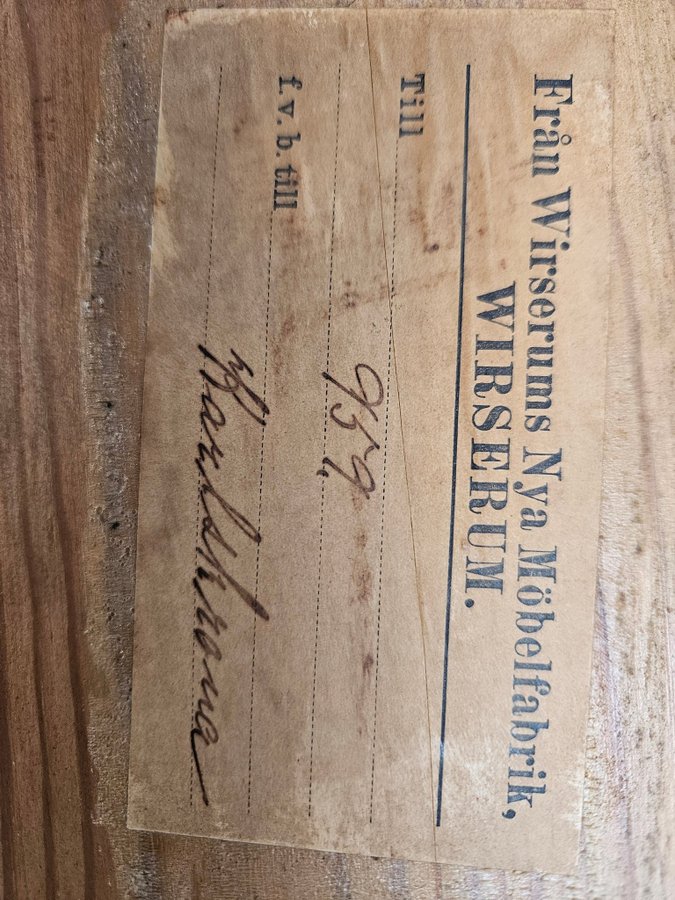 Från Wirserums Nya Möbelfabrik,
WIRSERUM.
Till
959
f. v. b. till
Karlskrona